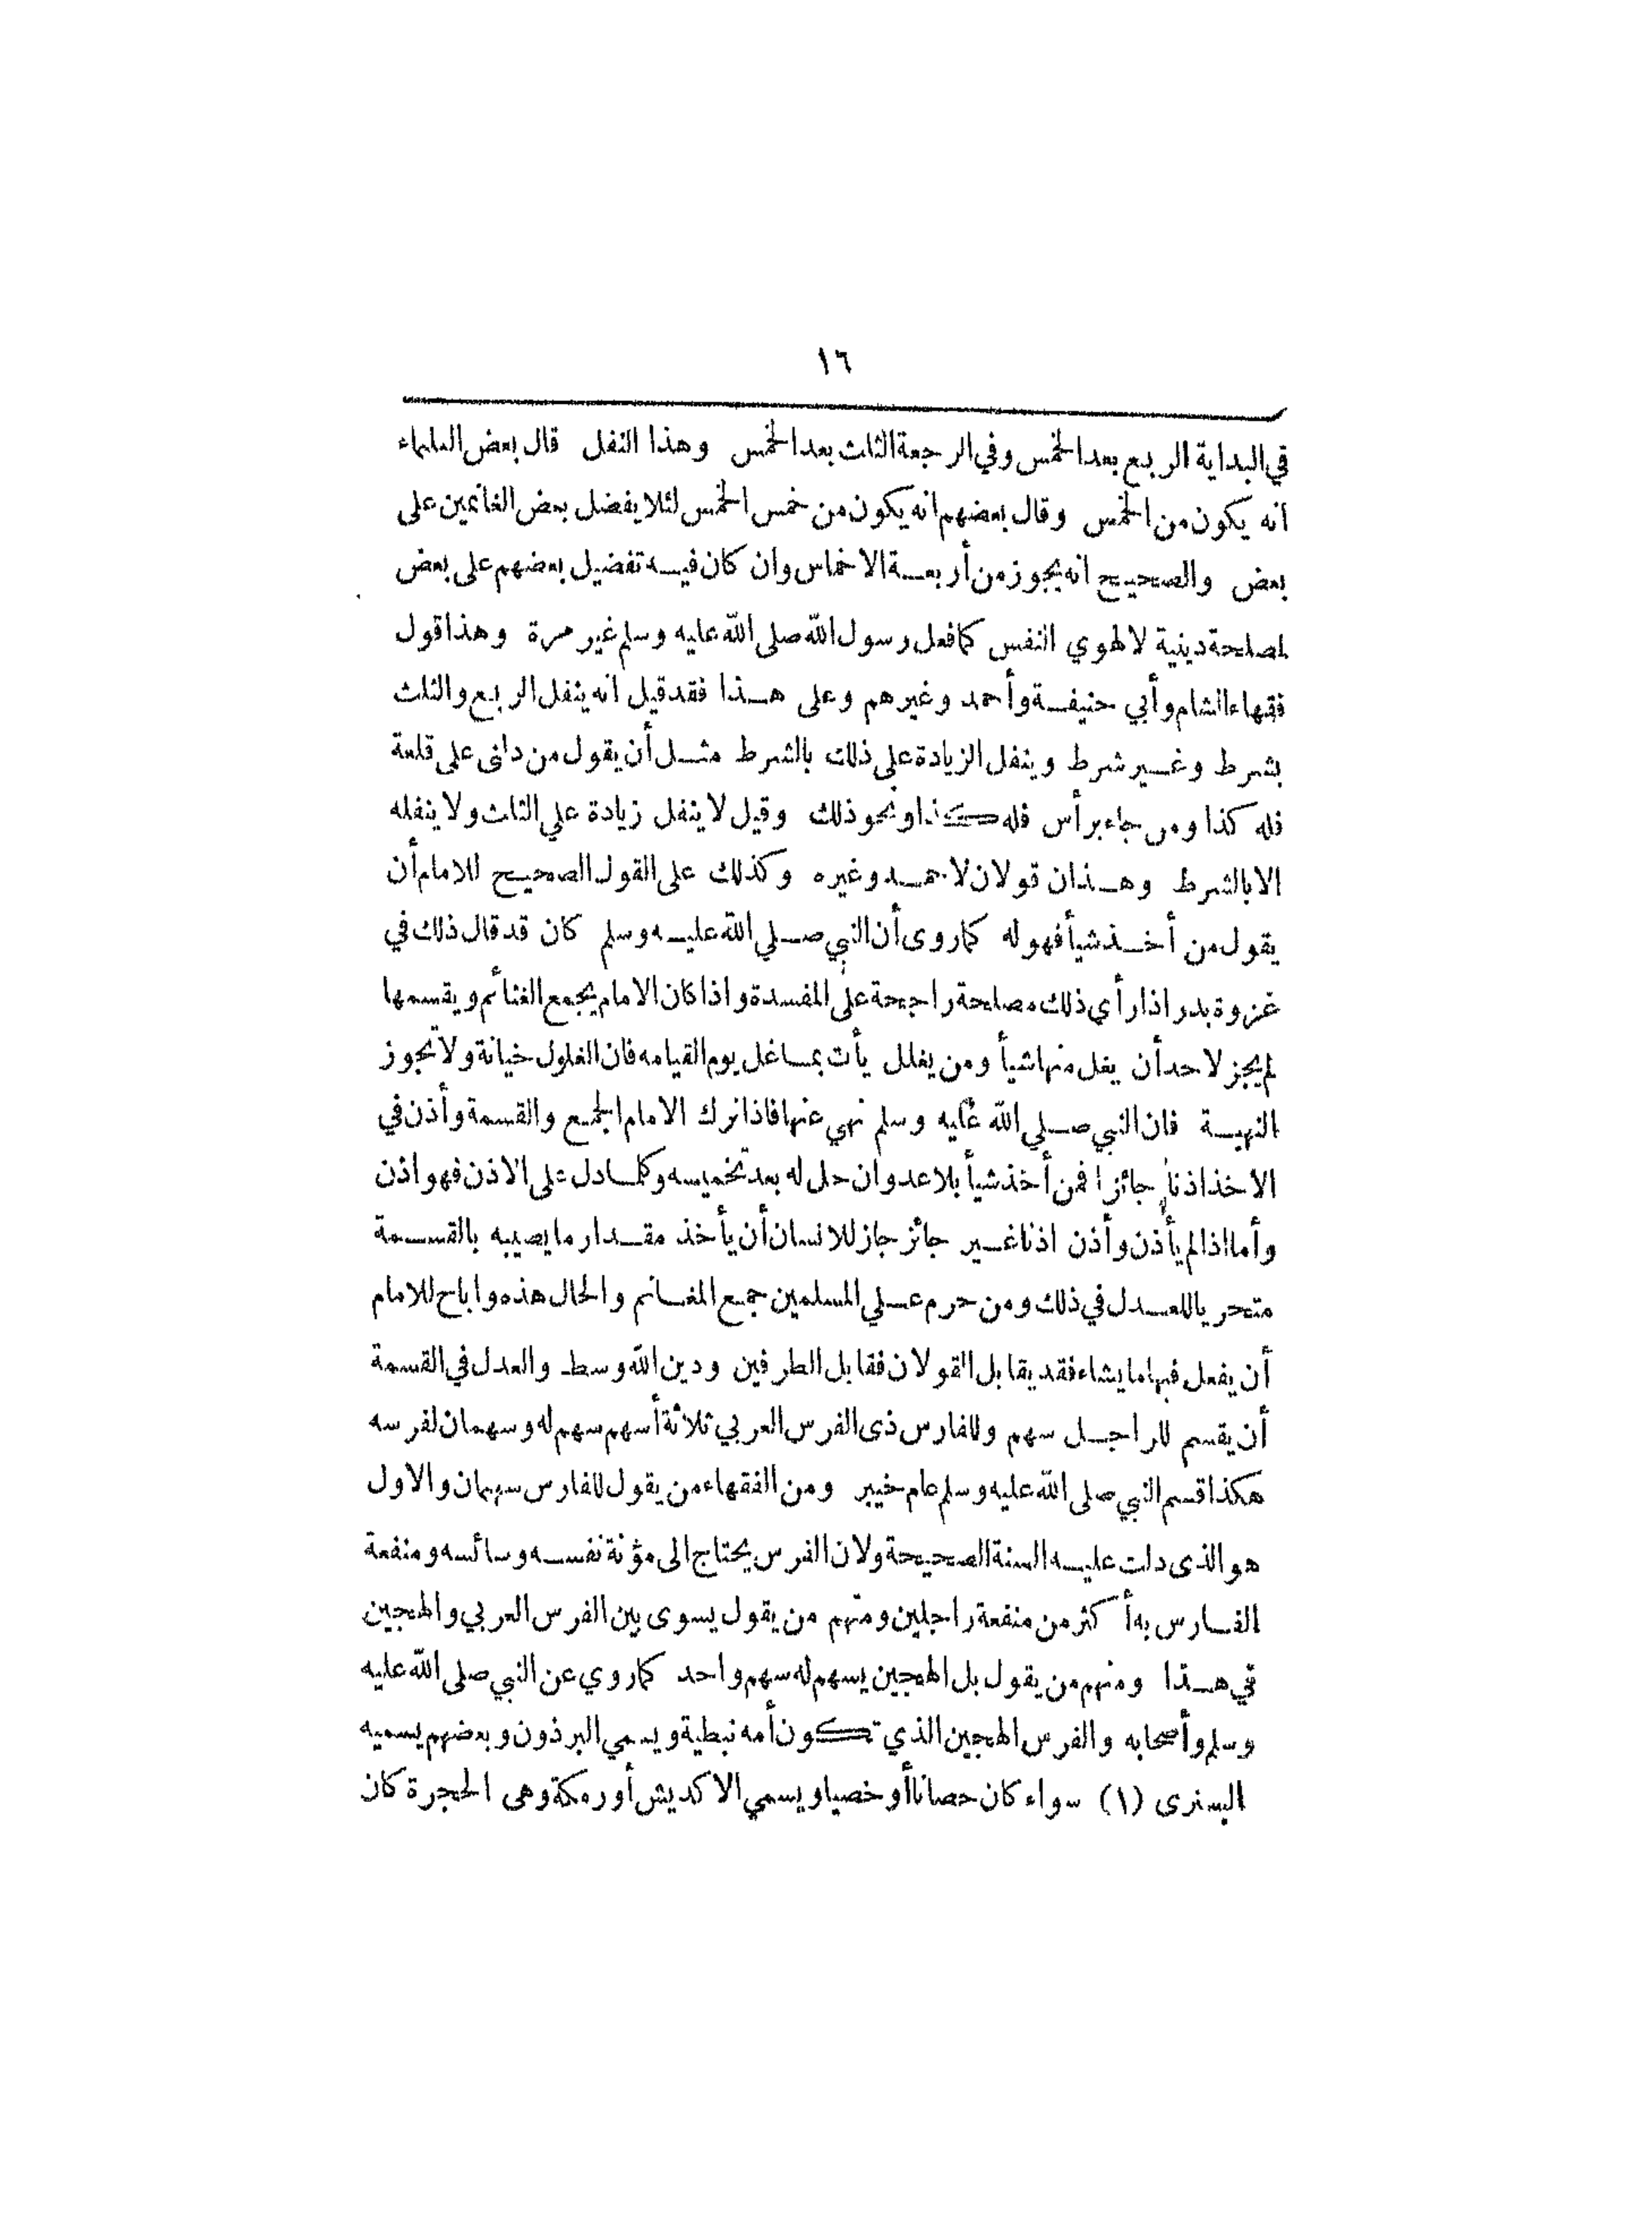 ١٦
في البداية الربع بعد الخمس وفي الرجعة الثلث بعد الخمس وهذا النفل قال بعض العلماء
انه يكون من الخمس وقال بعضهم انه يكون من خمس الخمس لئلا يفضل بعض الغانمين على
بعض والصحيح انه يجوز من أربعة الاخماس وان كان فيه تفضيل بعضهم على بعض
لمصلحة دينية لا لهوي النفس كما فعل رسول الله صلى الله عليه وسلم غير مرة وهذا قول
فقهاء الشام وأبي حنيفة وأحمد وغيرهم وعلى هذا فقد قيل انه ينفل الربع والثلث
بشرط وغير شرط وينفل الزيادة على ذلك بالشرط مثل أن يقول من دلنى على قلعة
فله كذا ومن جاء برأس فله كذا ونحو ذلك وقيل لا ينفل زيادة علي الثلث ولا ينفله
الا بالشرط وهذان قولان لاحمد وغيره وكذلك على القول الصحيح للامام أن
يقول من أخذ شيأ فهو له كما روى أن النبي صلي الله عليه وسلم كان قد قال ذلك في
غزوة بدر اذا رأي ذلك مصلحة راجحة على المفسدة واذا كان الامام يجمع الغنائم ويقسمها
لم يجز لاحد أن يغل منها شيأ ومن يغلل يأت بما غل يوم القيامه فان الغلول خيانة ولا تجوز
النهبة فان النبي صلي الله عليه وسلم نهي عنها فاذا ترك الامام الجمع والقسمة وأذن في
الاخذ اذنا جائزا فمن أخذ شيأ بلا عدوان حل له بعد تخميسه وكلما دل على الاذن فهو اذن
وأما اذا لم يأذن وأذن اذنا غير جائز جاز للانسان أن يأخذ مقدار ما يصيبه بالقسمة
متحريا للعدل في ذلك ومن حرم علي المسلمين جمع المغانم والحال هذه واباح للامام
أن يفعل فيها ما يشاء فقد يقابل القولان فقابل الطرفين ودين الله وسط والعدل في القسمة
أن يقسم للراجل سهم وللفارس ذى الفرس العربي ثلاثة أسهم سهم له وسهمان لفرسه
هكذا قسم النبي صلى الله عليه وسلم عام خيبر ومن الفقهاء من يقول للفارس سهمان والاول
هو الذى دلت عليه السنة الصحيحة ولان الفرس يحتاج الى مؤنة نفسه وسائسه ومنفعة
الفارس به أكثر من منفعة راجلين ومنهم من يقول يسوى بين الفرس العربي والهجين
في هذا ومنهم من يقول بل الهجين يسهم له سهم واحد كما روي عن النبي صلى الله عليه
وسلم وأصحابه والفرس الهجين الذي تكون أمه نبطية ويسمي البرذون وبعضهم يسميه
البسترى (١) سواء كان حصانا أو خصيا ويسمي الاكديش أو رمكة وهى الحجرة كان